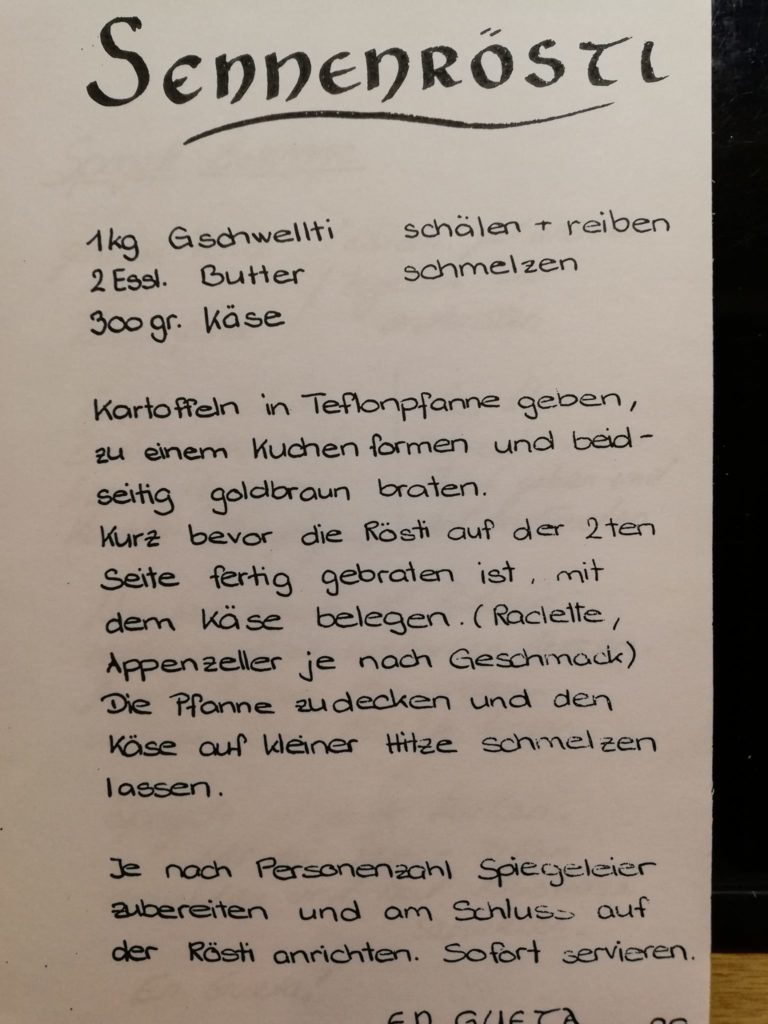 Sennenrösti
1kg Gschwellti schälen + reiben
2 Essl. Butter schmelzen
300 gr. Käse
Kartoffeln in Teflonpfanne geben,
zu einem Kuchen formen und beid-
seitig goldbraun braten.
Kurz bevor die Rösti auf der 2ten
Seite fertig gebraten ist, mit
dem Käse belegen. (Raclette,
Appenzeller je nach Geschmack)
Die Pfanne zudecken und den
Käse auf kleiner Hitze schmelzen
lassen.
Je nach Personenzahl Spiegeleier
zubereiten und am Schluss auf
der Rösti anrichten. Sofort servieren.
EN GUETA